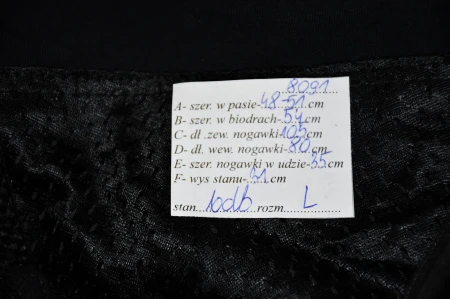 8091
A- szer. w pasie-48-51cm
B- szer. w biodrach-54cm
C- dł .zew. nogawki-105cm
D- dł. wew. nogawki-80cm
E- szer. nogawki w udzie-35cm
F- wys stanu-31cm
stan....bdb..rozm....L